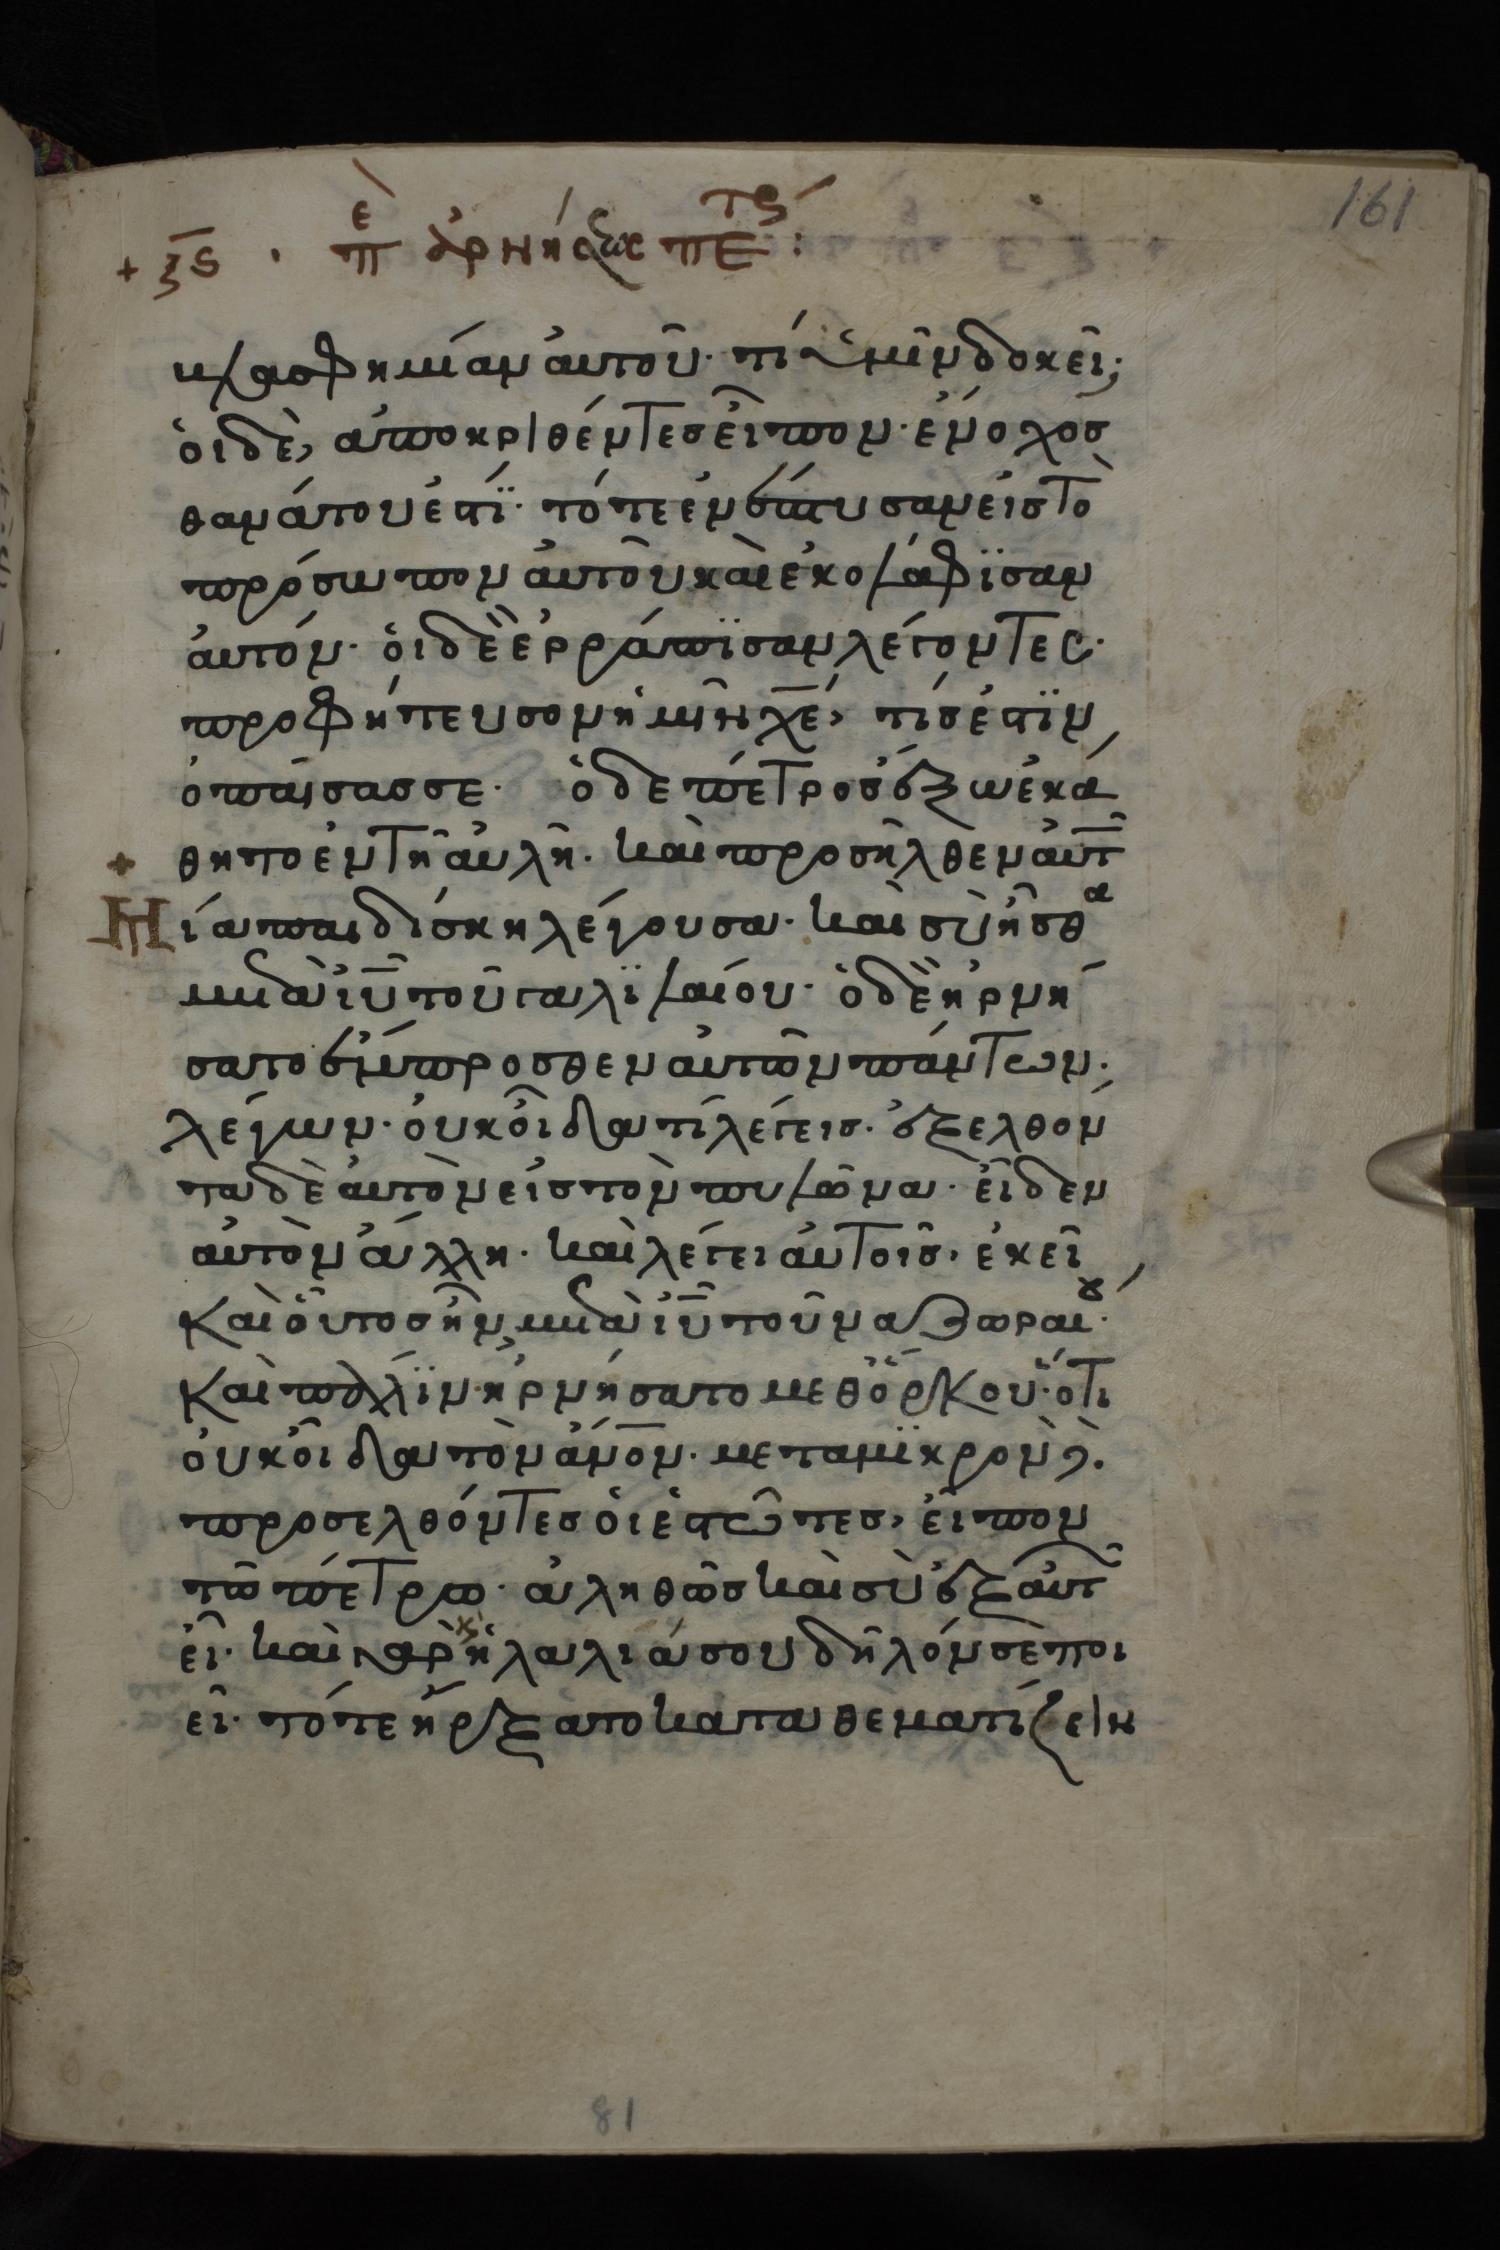 161
+ ξς · πε ἀρνήσεως πετρ :
βλασφημίαν ἀυτοῦ· τί ὑμῖν δοκεῖ;
ὁι δὲ, ἀποκριθέντες εἶπον· ἔνοχος
θανάτου ἐστί· τότε ἐνέπτυσαν εἰς τὸ
πρόσωπον ἀυτοῦ καὶ ἐκολάφϊσαν
ἀυτόν· ὁι δὲ ἐρράπϊσαν λέγοντες·
προφήτευσον ἡμῖν χ̅ε̅, τίς ἐστϊν
ὁ παίσας σε· ὁ δε πέτρος ἔξω ἐκά
θητο ἐν τῆ ἀυλῆ· καὶ προσῆλθεν ἀυτ
μία παιδίσκη λέγουσα· καὶ σὺ ἦσθα
μετὰ ι̅υ̅ τοῦ γαλϊλαίου· ὁ δὲ ἠρνή
σατο ἔμπροσθεν ἀυτῶν πάντων·
λέγων· ὀυκ οἶδα τί λέγεις· ἐξελθόν
τα δὲ ἀυτὸν εἰς τὸν πυλῶνα· εἶδεν
ἀυτὸν ἄλλη· καὶ λέγει ἀυτοῖς· ἐκεῖ
καὶ οὗτος ἦν μετὰ ι̅υ̅ τοῦ ναζωραίου·
καὶ πάλϊν ἠρνήσατο μεθ ὅρκου· ὅτι
ὀυκ οἶδα τὸν ἄν̅ο̅ν· μετα μϊκρὸν δὲ
προσελθόντες ὁι ἑστῶτες, εἶπον
τῶ πέτρω· ἀληθῶς καὶ σὺ ἐξ ἀυτ
εἶ· καὶ γὰρ ἡ λαλιά σου δῆλόν σε ποι
εῖ· τότε ἤρξατο καταθεματίζειν
81